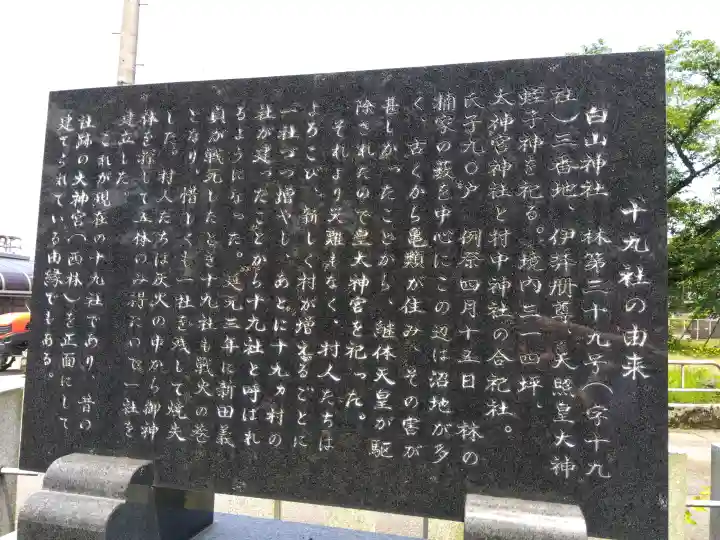 十九社の由来
白山神社 林第三十九号(字十九
社)三番地、伊弉册尊、天照皇大神
蛭子神を祀る。境内三一四坪、
太神宮神社と村中神社の合祀社。
氏子九〇戸 例祭四月十五日 林の
楠家の薮を中心にこの辺は沼地が多
く、古くから亀類が住み、その害が
甚しかったことから、継体天皇が駆
除されたので皇大神宮を祀った。
それより災難もなく、村人たちは
よろこび、新しく村が増えるごとに
一社づつ増やし、あとに十九ヵ村の
社が建ったことから十九社と呼ばれ
るようになった。延元三年に新田義
貞が戦死したとき十九社も戦火の巷
となり、惜しくも一社を残して焼失
した。村人たちは灰火の中から御神
体を探して五体のみ得たので一社を
建立した。
これが現在の十九社であり、昔の
社跡の大神宮(西林)を正面にして
建てられている由縁でもある。